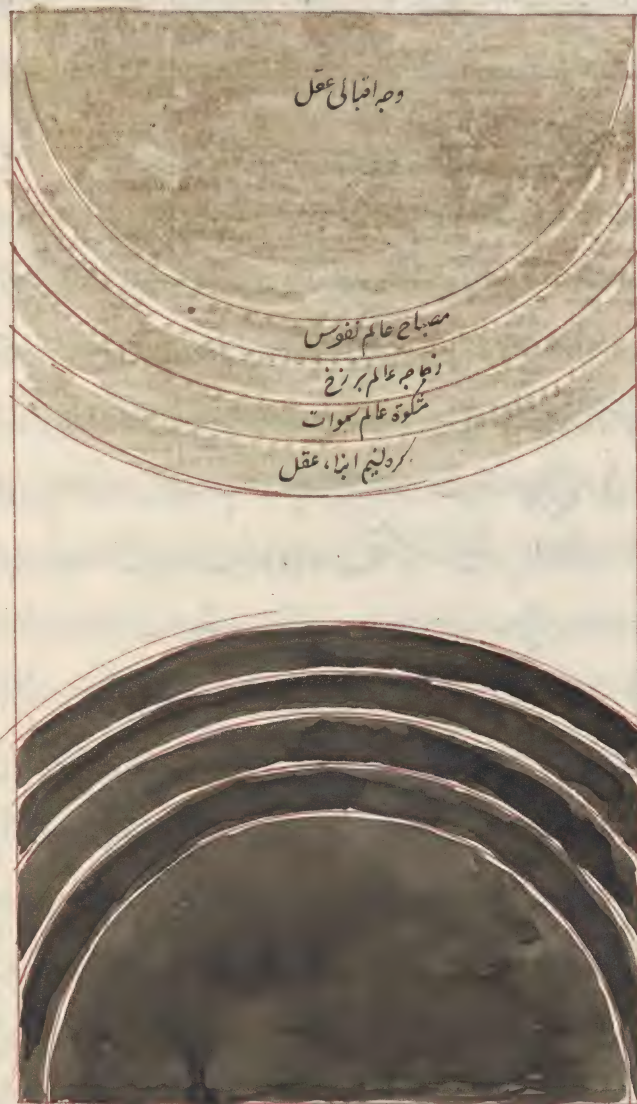 وجه اقبالی عقل
مصباح عالم نفوس
زجاجه عالم برزخ
مشکوة عالم سموات
عقل